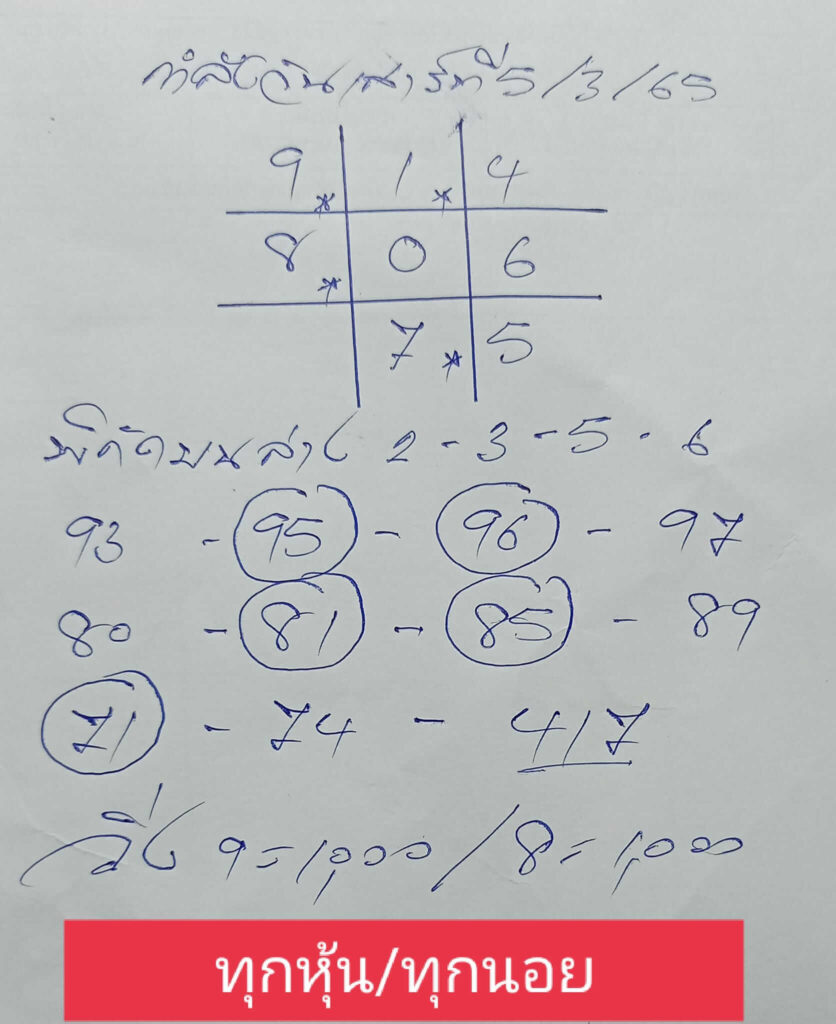 กำลังวันเสาร์ที่ 5/3/65
9 * 1 * 4
8 * 0 6
7 * 5
พิกัดบนล่าง 2 - 3 - 5 - 6
93 - 95 - 96 - 97
80 - 81 - 85 - 89
71 - 74 - 417
วิ่ง 9 = 1,000 / 8 = 1,000
ทุกหุ้น/ทุกนอย